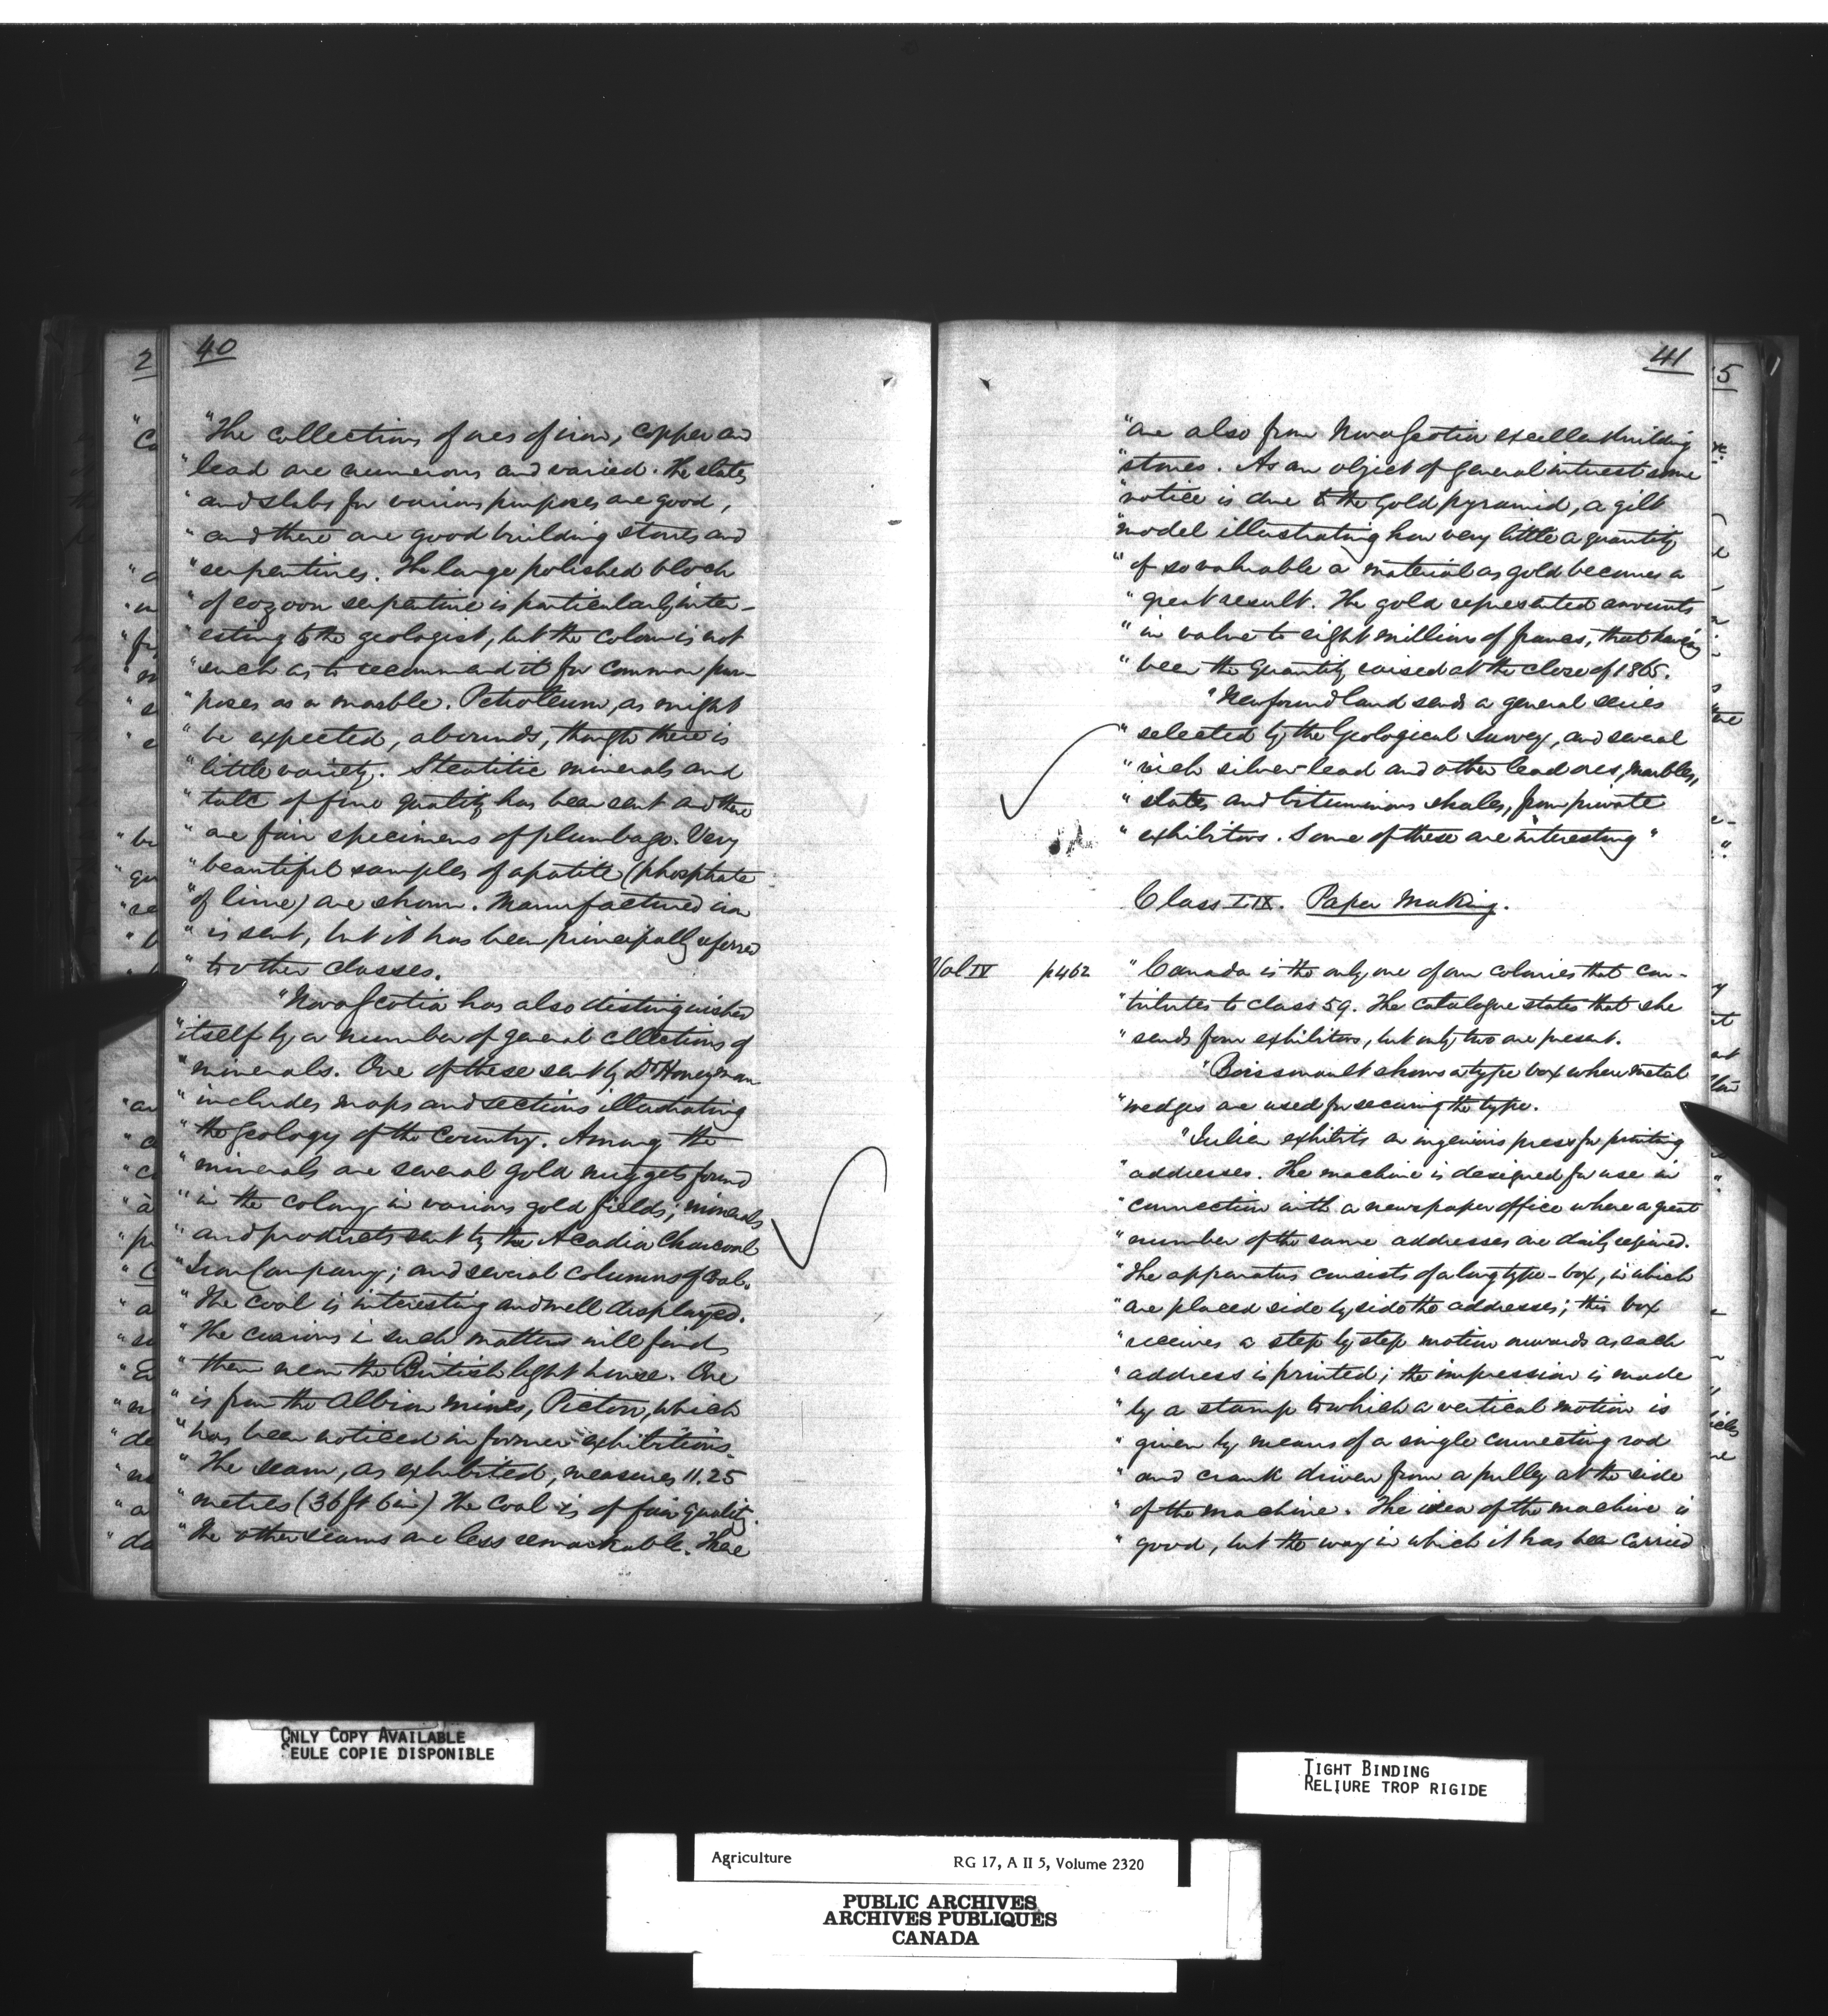 40
"The collections of ores of iron, copper and
"lead are numerous and varied. The slates
"and slabs for various purposes are good,
"and there are good building stones and
"serpentines. The large polished block
"of eozoon serpentine is particularly inter-
"esting to the geologist, but the colour is not
"such as to recommend it for common pur-
"poses as a marble. Petroleum, as might
"be expected, abounds, though there is
"little variety. Steatitic minerals and
"talc of fine quality has been sent and there
"are fair specimens of plumbago. Very
"beautiful samples of apatite (phosphate
"of lime) are shown. Manufactured iron
"is sent, but it has been principally referred
"to other classes.
"Nova Scotia has also distinguished
"itself by a number of general cllections of
"minerals. One of these sent by Dr Honeyman
"includes maps and sections illustrating
"the geology of the Country. Among the
"minerals are several gold nuggets found
"in the colony in various gold fields; minerals
"and products sent by the Acadia Charcoal
"Iron Company; and several columns of Coal.
"The coal is interesting and well displayed.
"The curious in such matters will find
"them near the British light house. One
"is from the Albion mines, Pictou, which
"has been noticed in former exhibitions
"The seam, as exhibited, measures 11.25
"metres (36 ft 6 in) The Coal is of fair quality.
"The other seams are less remarkable. There
41
"are also from Nova Scotia excellent building
"stones. As an object of general interest some
"notice is due to the Gold pyramid, a gilt
"model illustrating how very little a quantity
"of so valuable a material as gold becomes a
"great result. The gold represented amounts
"in value to eight millions of francs, that having
"been the quantity raised at the close of 1865.
"Newfoundland sends a general series
"selected by the Geological Survey, and several
"rich silver-lead and other lead ores, marbles,
"slates and bituminous shales, from private
"exhibitors. Some of these are interesting"
Class LIX. Paper Making.
Vol IV p462 "Canada is the only one of our colonies that con-
"tributes to class 59. The Catalogue states that she
"sends four exhibitors, but only two are present.
"Boissenault shows a type box where metal
"wedges are used for securing the type.
"Julien exhibits an ingenious press for printing
"addresses. The machine is designed for use in
"connection with a newspaper office where a great
"number of the same addresses are daily required.
"The apparatus consists of a long type-box, in which
"are placed side by side the addresses; this box
"receives a step by step motion onwards as each
"address is printed; the impression is made
"by a stamp to which a vertical motion is
"given by means of a single connecting rod
"and crank driven from a pully at the side
"of the machine. The idea of the machine is
"good, but the way in which it has been carried
ONLY COPY AVAILABLE
SEULE COPIE DISPONIBLE
TIGHT BINDING
RELIURE TROP RIGIDE
Agriculture RG 17, A II 5, Volume 2320
PUBLIC ARCHIVES
ARCHIVES PUBLIQUES
CANADA